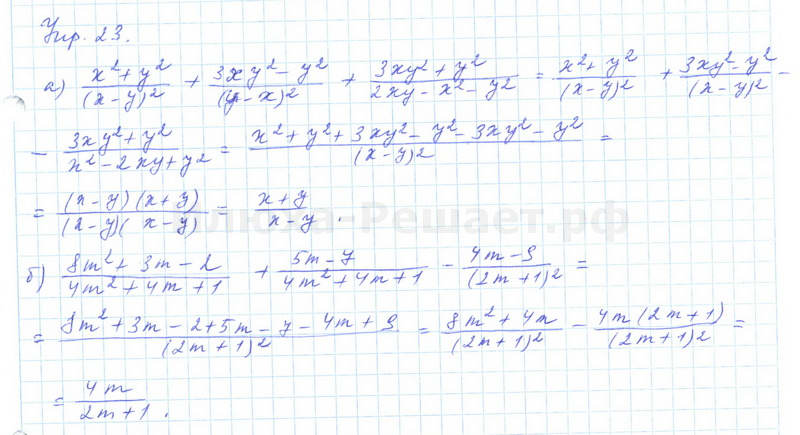 Упр. 23.
а) (x² + y²)/(x - y)² + (3xy² - y²)/(y - x)² + (3xy² + y²)/(2xy - x² - y²) = (x² + y²)/(x - y)² + (3xy² - y²)/(x - y)² -
- (3xy² + y²)/(x² - 2xy + y²) = (x² + y² + 3xy² - y² - 3xy² - y²)/(x - y)² =
= (x - y)(x + y)/(x - y)(x - y) = (x + y)/(x - y).
-Решает.рф
б) (8m² + 3m - 2)/(4m² + 4m + 1) + (5m - 7)/(4m² + 4m + 1) - (4m - 9)/(2m + 1)² =
= (8m² + 3m - 2 + 5m - 7 - 4m + 9)/(2m + 1)² = (8m² + 4m)/(2m + 1)² - 4m(2m + 1)/(2m + 1)² =
= 4m/(2m + 1).